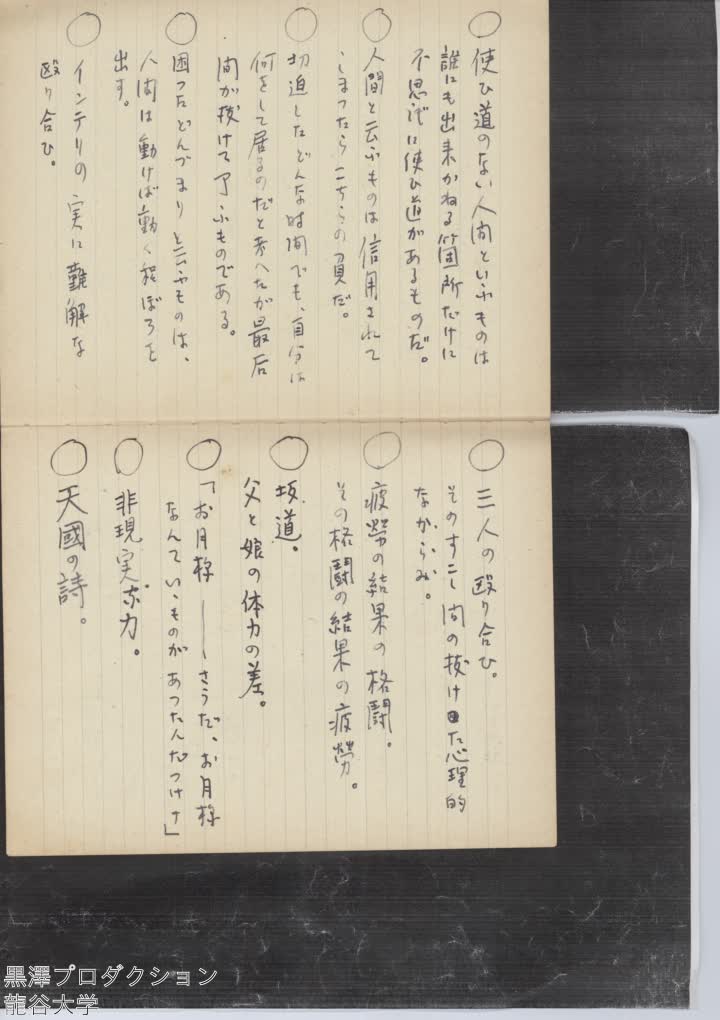 ○ 使ひ道のない人間といふものは
誰にも出来かねる箇所だけに
不思議に使ひ道があるものだ。
○ 人間と云ふものは信用されて
しまつたらこちらの負だ。
○ 切迫したどんな時間でも、自分は
何をして居るのだと考へたが最后
間が抜けて了ふものである。
○ 困つたどんづまりと云ふものは、
人間は動けば動く程ぼろを
出す。
○ インテリの実に難解な
殴り合ひ。
○ 三人の殴り合ひ。
そのすこし間の抜けた心理的
なからみ。
○ 疲労の結果の格闘。
その格闘の結果の疲労。
○ 坂道。
父と娘の体力の差。
○ 「お月様──さうだ、お月様
なんていゝものがあつたんだつけ」
○ 非現実な力。
○ 天國の詩。
黒澤プロダクション
龍谷大学